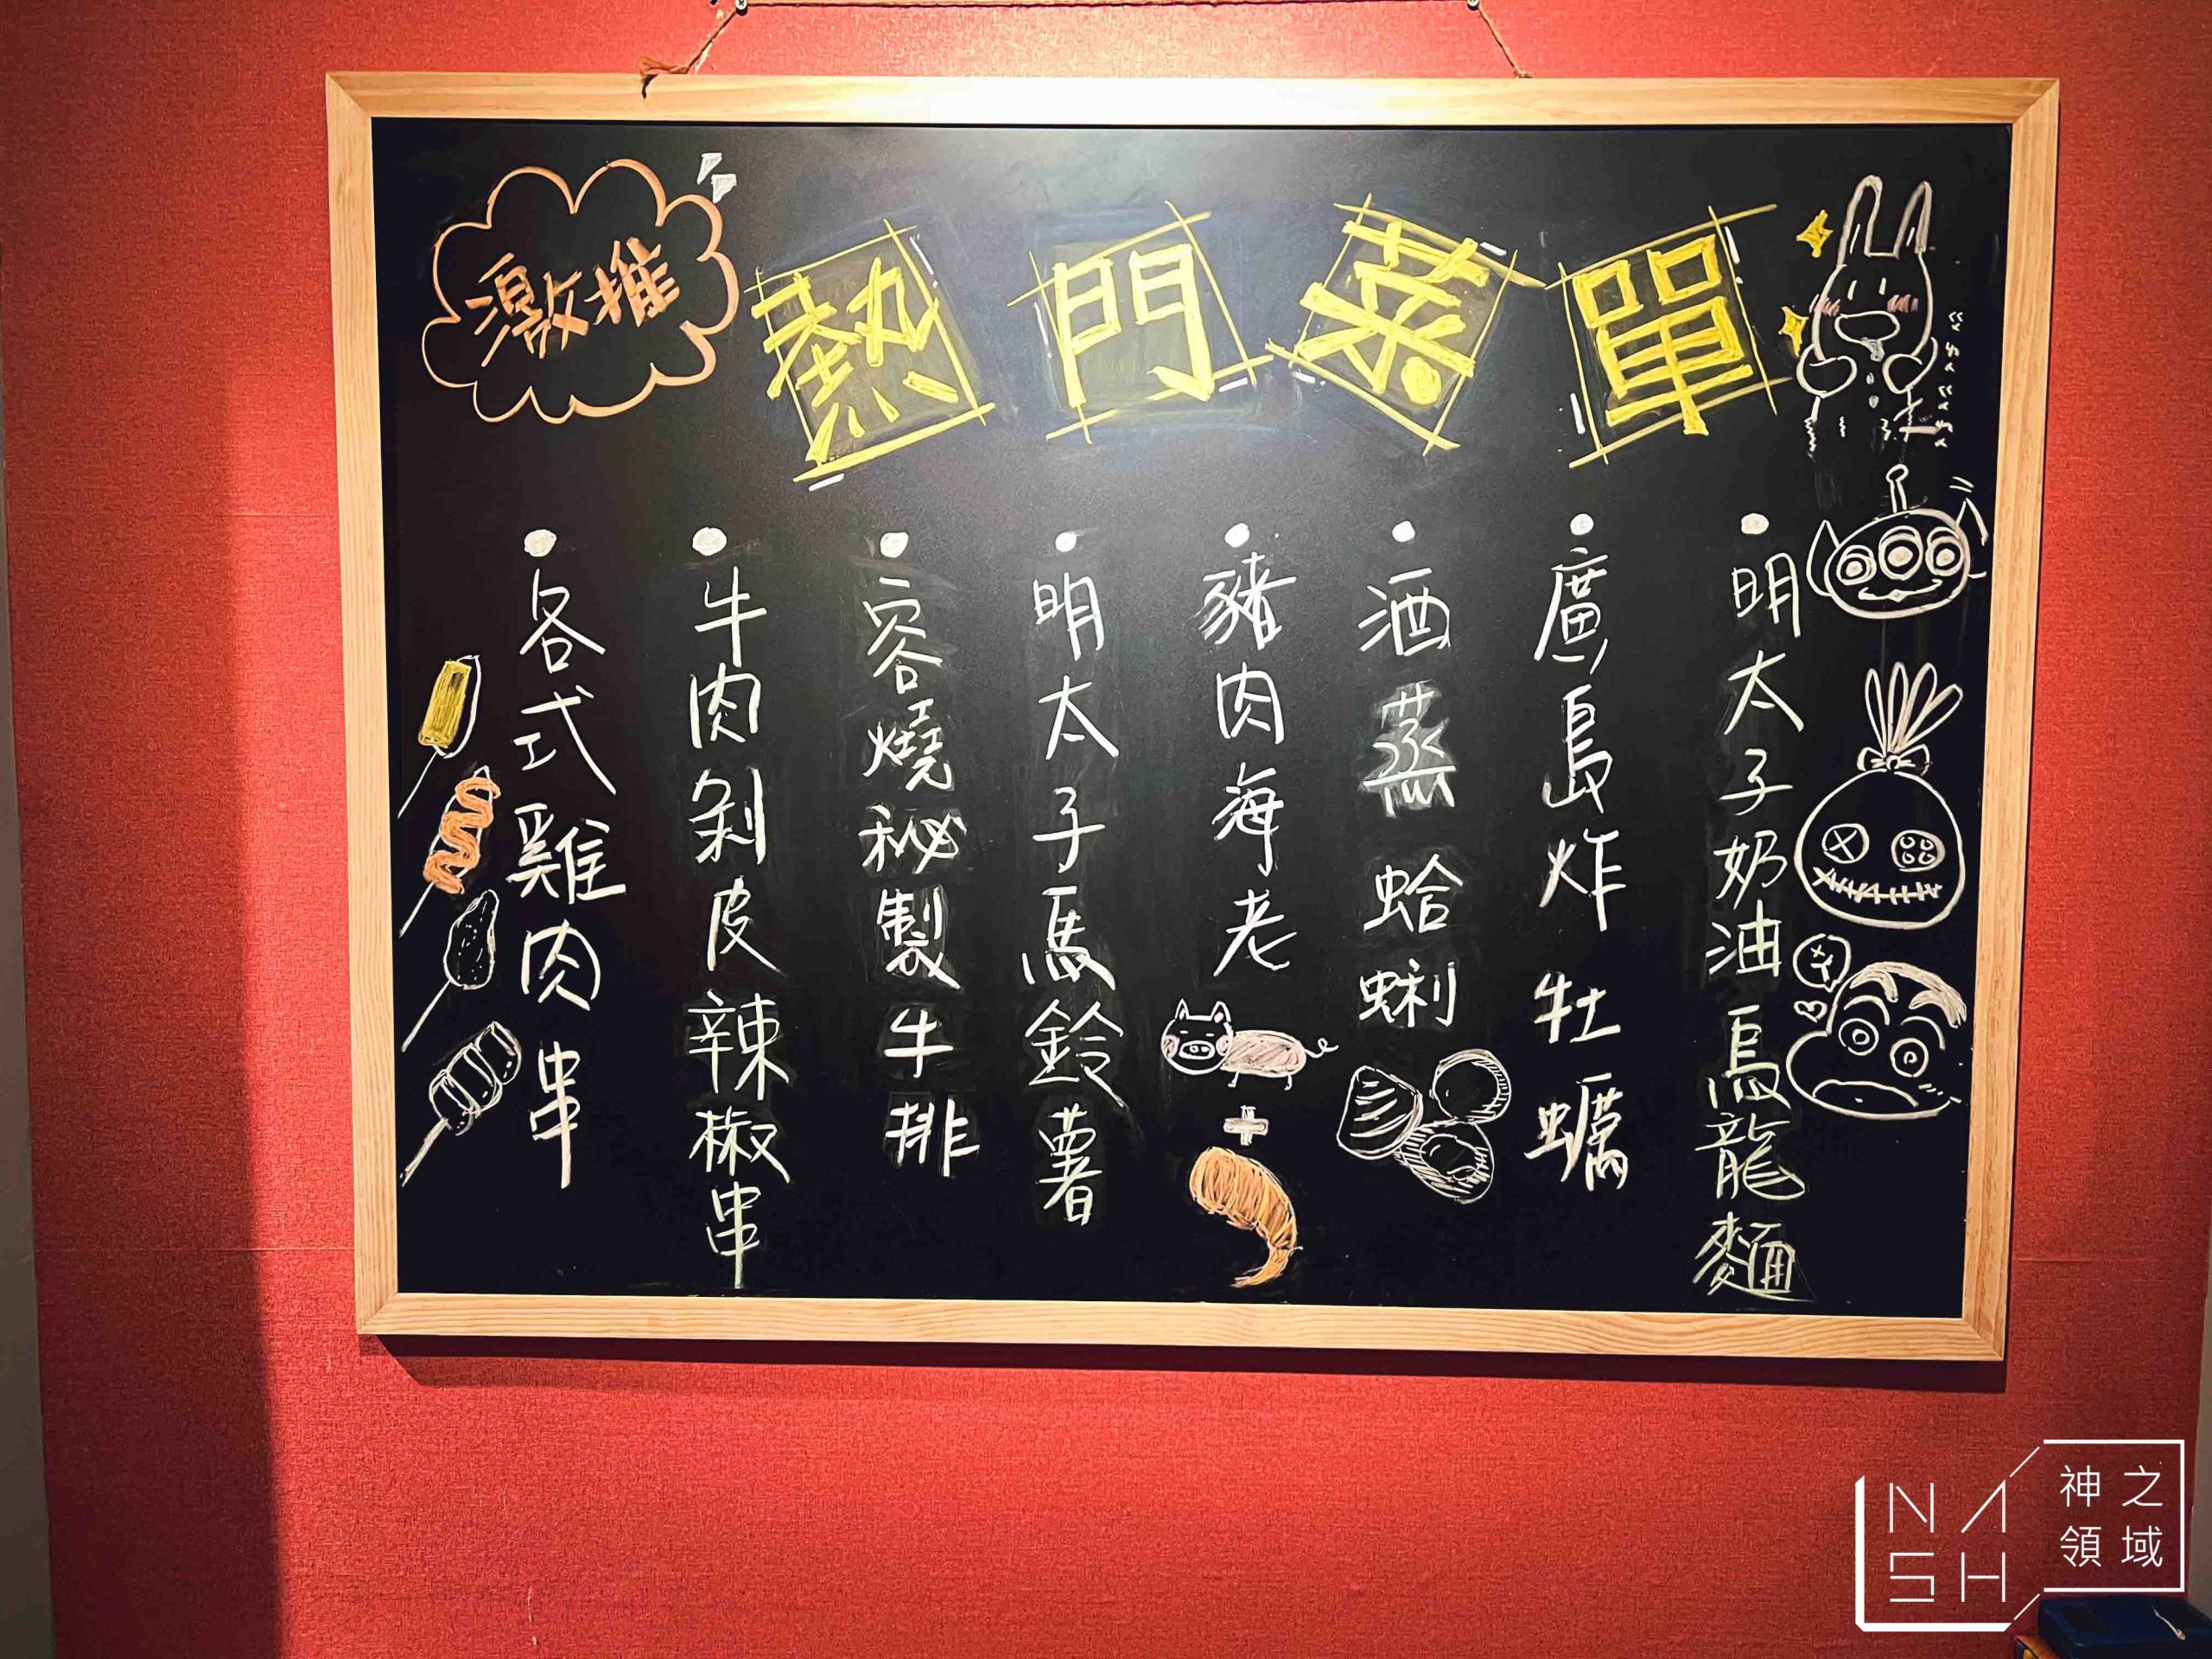 激推
熱門菜單
明太子奶油烏龍麵
廣島炸牡蠣
酒蒸蛤蜊
豬肉海老
明太子馬鈴薯
容燒秘製牛排
牛肉剝皮辣椒串
各式雞肉串
NASH
神之領域